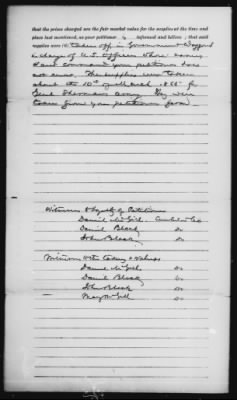 that the prices charged are the fair market value for the supplies at the time and
place last mentioned, as your petitioner is informed and believes; that said
supplies were (6) taken off in Government Waggons
in charge of U.S. Officers whose names
and command your petitioner does
not know. The supplies were taken
about the 10th of March 1865 for
Genl Shermans army. They were
taken from your petitioners farm.
Witnesses to loyalty of Petitioner
Daniel McGill
Daniel Black do
John Black do
Witnesses to the taking & values
Daniel McGill do
Daniel Black do
John Black do
Mary McGill do